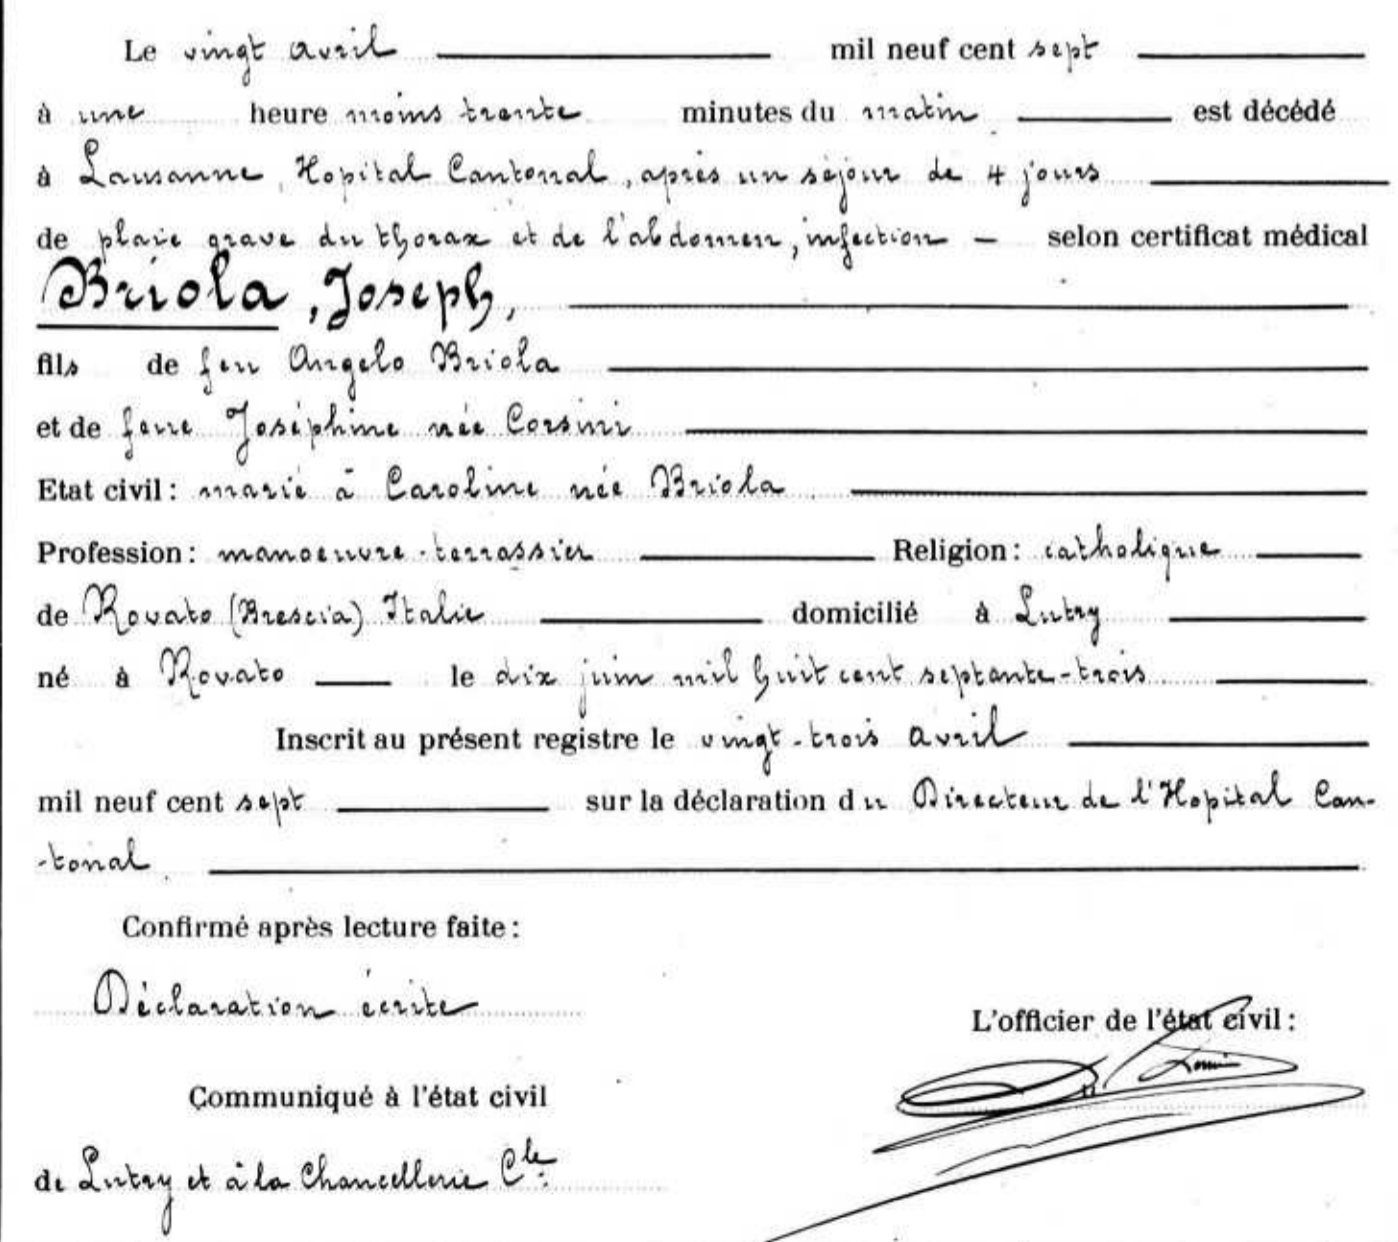 Le vingt avril mil neuf cent sept
à une heure moins trente minutes du matin est décédé
à Lausanne, Hopital Cantonal, après un séjour de 4 jours
de plaie grave du thorax et de l'abdomen, infection – selon certificat médical
Briola, Joseph,
fils de feu Angelo Briola
et de feue Joséphine née Corsini
Etat civil : marié à Caroline née Briola
Profession : manoeuvre-terrassier Religion : catholique
de Rovato (Brescia) Italie domicilié à Lutry
né à Rovato le dix juin mil huit cent septante-trois
Inscrit au présent registre le vingt-trois avril
mil neuf cent sept sur la déclaration du Directeur de l'Hopital Can-
-tonal
Confirmé après lecture faite :
Déclaration écrite
L'officier de l'état civil :
Communiqué à l'état civil
de Lutry et à la Chancellerie Cle.